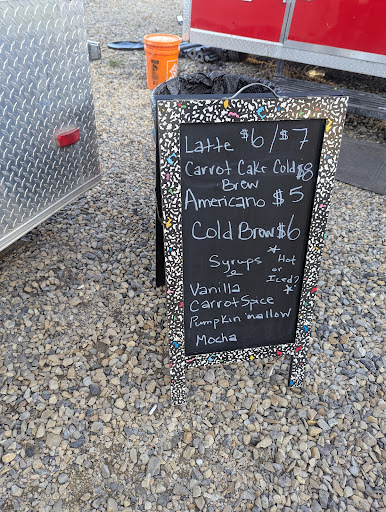 Latte $6/$7
Carrot Cake Cold $8
Brew
Americano $5
Cold Brew $6
Syrups
* Hot or Iced? *
Vanilla
Carrot Spice
Pumpkin mallow
Mocha